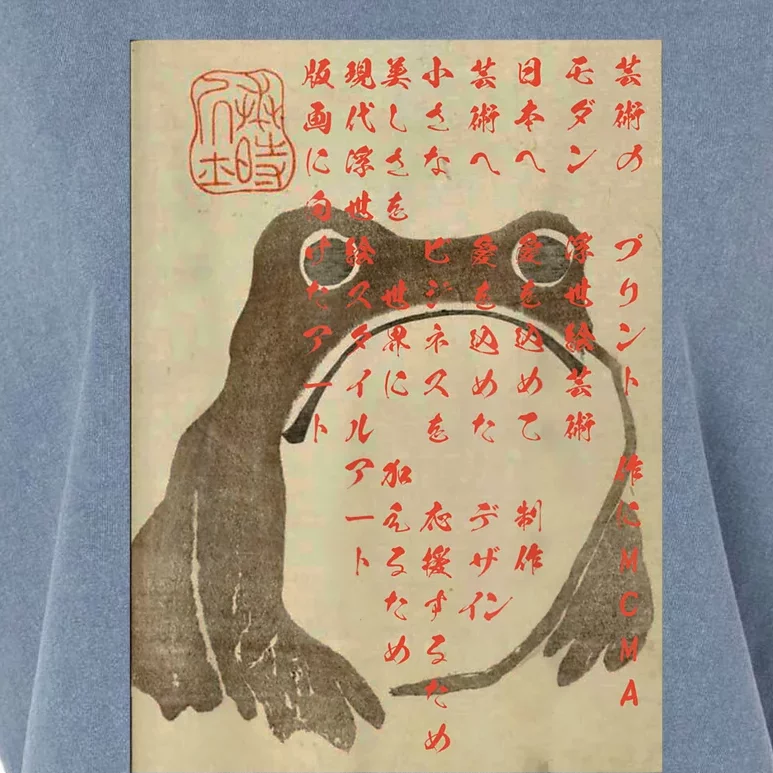 芸術の プリント 作に MCMA
モダン 浮世絵芸術
日本へ 愛を込めて 制作
芸術へ 愛を込めた デザイン
小さな ビジネスを 応援するため
美しさを 世界に 加えるため
現代浮世絵スタイルアート
版画に向けたアート